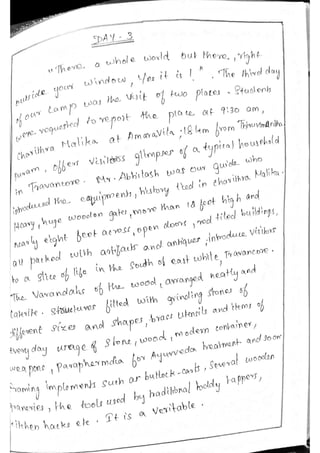 DAY - 3
"There, a whole world out there, right
outside your window, Yes it is !". The third day
of our Camp was the visit of two places. Students
were requested to report the place at 9:30 am,
Charithra Malika at AmaraVila, 18 km from
puram, offers visitors glimpses of a typical household
in Travancore. Mr. Abhilash was our guide who
introduced the equipments, history tied in Charithra Malika.
Heavy, huge wooden gates, more than 18 feet high and
nearly eight feet across, open doors, red tiled buildings,
all packed with artifacts and antiques, introduce visitors
to a slice of life in the South of east while, Travancore.
The Varandahs of the wood, arranged neatly and
Laterite. Structures filled with grinding stones of
different sizes and shapes, brass utensils and items of
Everyday usage of stone, wood, modern container,
weapons, Paraphernalia for Ayurveda treatment and soon
Framing implements such as bullock-carts, Several wooden
graneries, the tools used by traditional toddy tappers,
Kitchen hacks etc. It is a veritable.